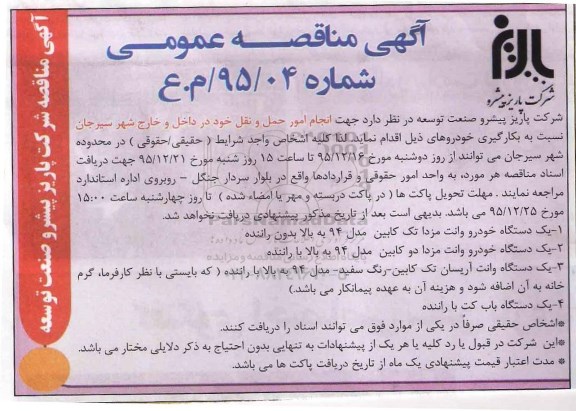 آگهی مناقصه عمومی
شماره ۹۵/۰۴/م.ع
پاریز
شرکت پاریز پیشرو
آگهی مناقصه شرکت پاریز پیشرو صنعت توسعه
شرکت پاریز پیشرو صنعت توسعه در نظر دارد جهت انجام امور حمل و نقل خود در داخل و خارج شهر سیرجان
نسبت به بکارگیری خودروهای ذیل اقدام نماید. لذا کلیه اشخاص واجد شرایط ( حقیقی/حقوقی ) در محدوده
شهر سیرجان می توانند از روز دوشنبه مورخ ۹۵/۱۲/۱۶ تا ساعت ۱۵ روز شنبه مورخ ۹۵/۱۲/۲۱ جهت دریافت
اسناد مناقصه هر مورد، به واحد امور حقوقی و قراردادها واقع در بلوار سردار جنگل – روبروی اداره استاندارد
مراجعه نمایند . مهلت تحویل پاکت ها ( در پاکت دربسته و مهر یا امضاء شده ) تا روز چهارشنبه ساعت ۱۵:۰۰
مورخ ۹۵/۱۲/۲۵ می باشد. بدیهی است بعد از تاریخ مذکور پیشنهادی دریافت نخواهد شد.
۱-یک دستگاه خودرو وانت مزدا تک کابین مدل ۹۴ به بالا بدون راننده
۲-یک دستگاه خودرو وانت مزدا دو کابین مدل ۹۴ به بالا با راننده
۳-یک دستگاه وانت آریسان تک کابین-رنگ سفید- مدل ۹۴ به بالا با راننده ( که بایستی با نظر کارفرما، گرم
خانه به آن اضافه شود و هزینه آن به عهده پیمانکار می باشد.)
۴-یک دستگاه باب کت با راننده
*اشخاص حقیقی صرفاً در یکی از موارد فوق می توانند اسناد را دریافت کنند.
*این شرکت در قبول یا رد کلیه یا هر یک از پیشنهادات به تنهایی بدون احتیاج به ذکر دلایلی مختار می باشد.
* مدت اعتبار قیمت پیشنهادی یک ماه از تاریخ دریافت پاکت ها می باشد.